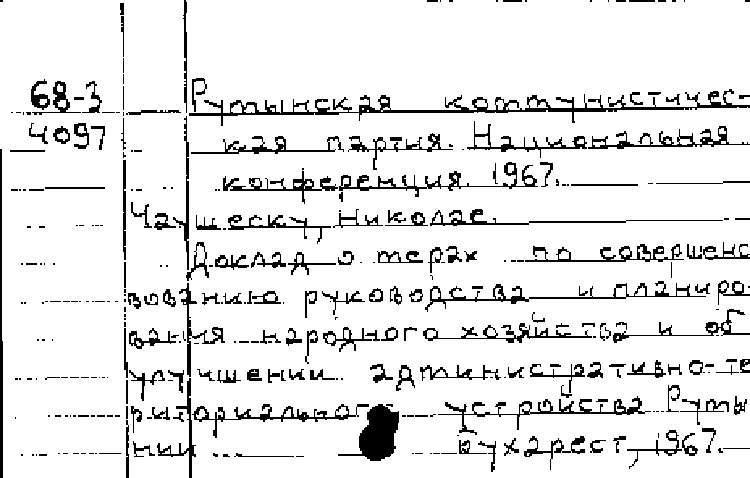 68-3 Румынская коммунистичес-
4097 кая партия. Национальная
конференция. 1967.
Чаушеску, Николае.
Доклад о мерах по совершенс
вованию руководства и планиро-
вания народного хозяйства и об
улучшении административно-те
риториального устройства Румы
нии Бухарест, 1967.